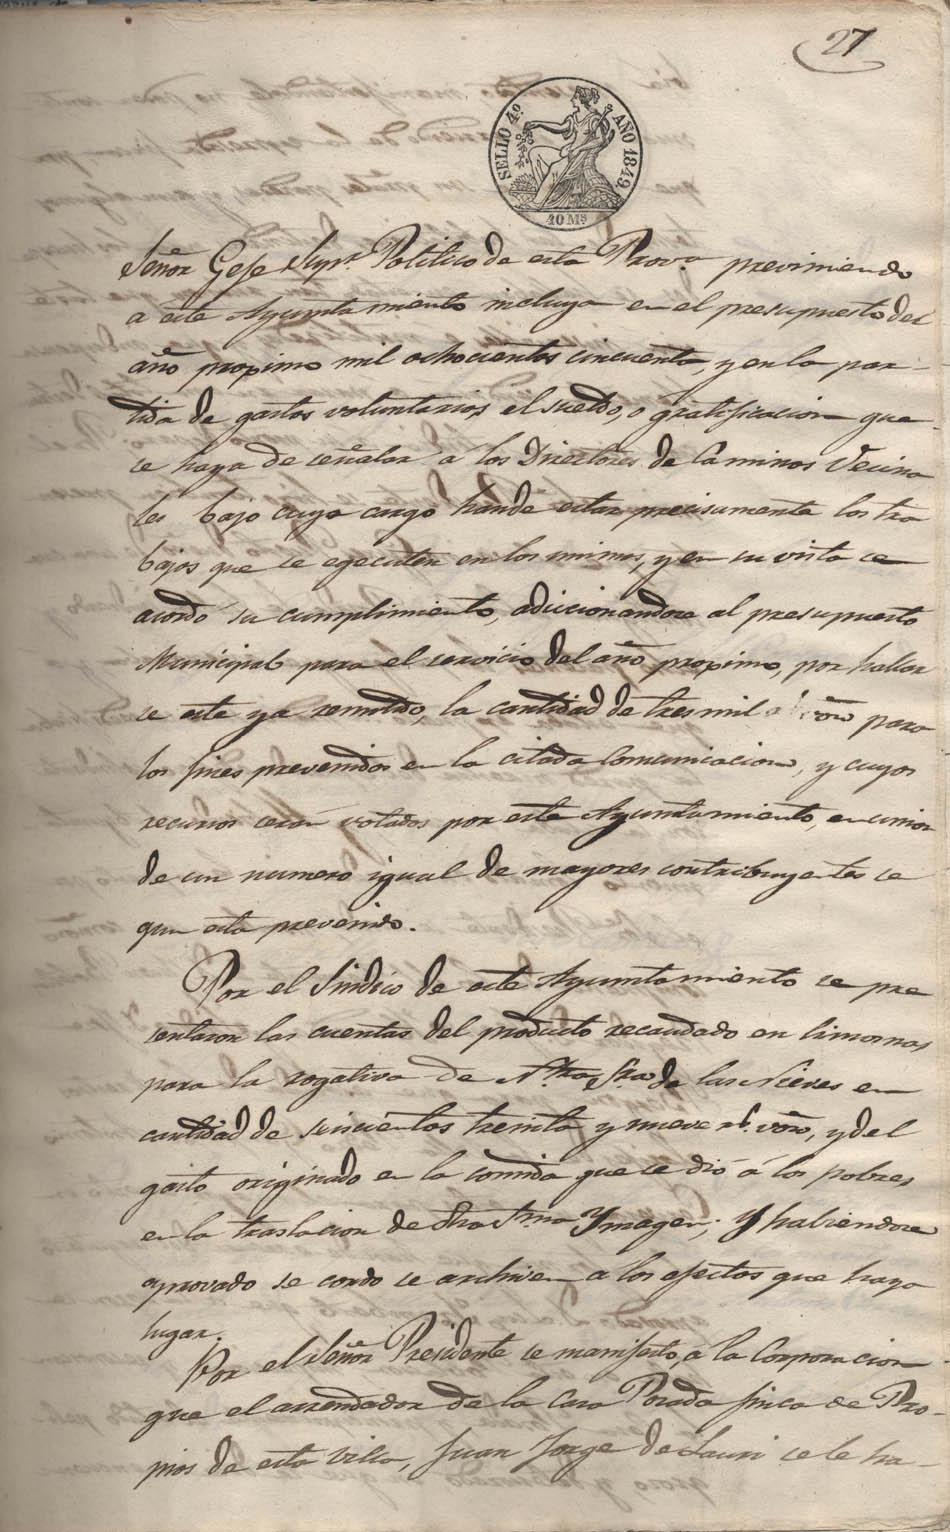 27
SELLO 4º AÑO 1849.
40 Ms
Señor Gefe Supr. Politico de esta Prova. previniendo
a este Ayuntamiento incluya en el presupuesto del
año proximo mil ochocientos cincuenta, y en la par-
tida de gastos voluntarios el sueldo, o gratificacion que
se haya de señalar á los Directores de Caminos Vecina
les bajo cuyo cargo hande estar precisamente los tra
bajos que se egecuten en los mimos, y en su vista se
acordó su cumplimiento, adicionandose al presupuesto
Municipal para el servicio del año proximo, por hallar
se este ya remitido, la cantidad de tres mil von para
los fines prevenidos en la citada Comunicacion, y cuyos
recursos seran votados por este Ayuntamiento, en union
de un numero igual de mayores contribuyentes se
gun esta prevenido.
Por el Sindico de este Ayuntamiento se pre
sentaron las cuentas del producto recaudado en limosnas
para la rogativa de Ntra Sra de las Nieves en
cantidad de treinta y nueve rs. von, y del
gasto originado en la comida que se dió á los pobres
en la traslacion de Dha Stma Ymagen; y habiendose
aprovado se cordo se archiven a los efectos que haya
lugar.
Por el Señor Presidente se manifesto, a la Corporacion
que el arrendador de la Casa Posada finca de Pro-
pios de esta villa, Juan Jorge de se le ha-